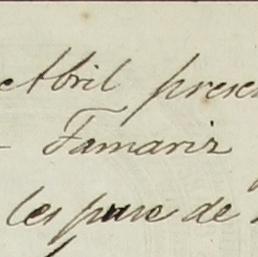 Abril presen
- Tamariz
les puse de